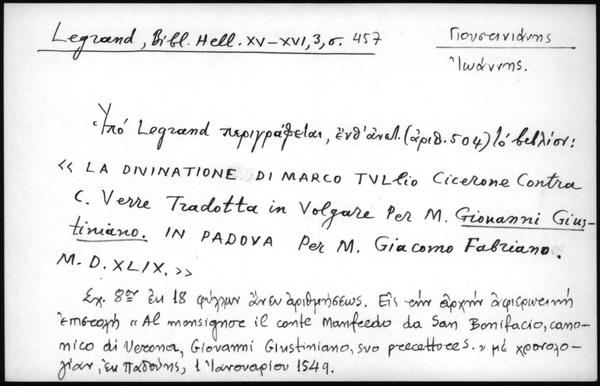 Legrand, Bibl. Hell. XV–XVI, 3, σ. 457
Γιουστινιάνης
Ἰωάννης.
Ὑπό Legrand περιγράφεται, ἐνθ' ἀνωτ. (ἀριθ. 504) τό βιβλίον:
« LA DIVINATIONE DI MARCO TVLlio Cicerone Contra
C. Verre Tradotta in Volgare Per M. Giouanni Gius-
tiniano. IN PADOVA Per M. Giacomo Fabriano.
M.D.XLIX. »
Σχ. 8ον ἐκ 18 φύλλων ἄνευ ἀριθμήσεως. Εἰς τήν ἀρχήν ἀφιερωτική
ἐπιστολή « Al monsignor il conte Manfredo da San Bonifacio, cano-
nico di Verona, Giovanni Giustiniano, suo precettore. » μέ χρονολο-
γίαν, ἐκ Παδούης, 1 Ἰανουαρίου 1549.